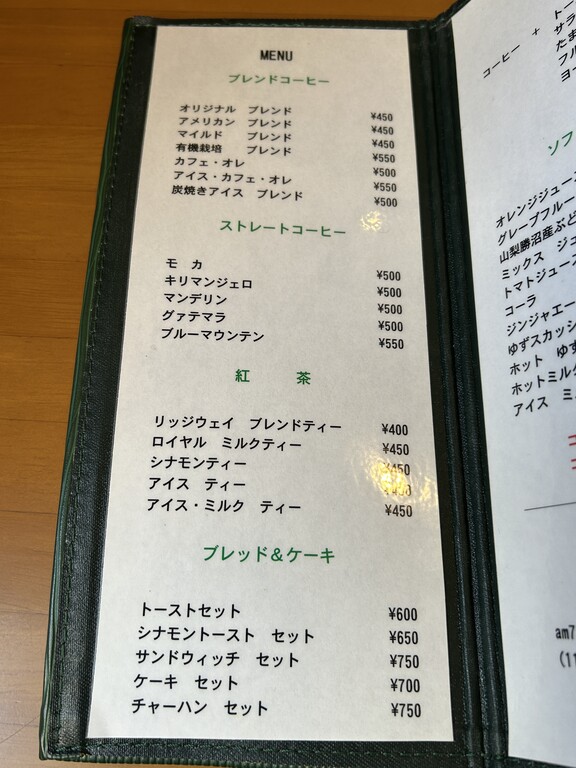 MENU
ブレンドコーヒー
オリジナル ブレンド ¥450
アメリカン ブレンド ¥450
マイルド ブレンド ¥450
有機栽培 ブレンド ¥550
カフェ・オレ ¥500
アイス・カフェ・オレ ¥550
炭焼きアイス ブレンド ¥500
ストレートコーヒー
モ カ ¥500
キリマンジェロ ¥500
マンデリン ¥500
グァテマラ ¥500
ブルーマウンテン ¥550
紅 茶
リッジウェイ ブレンドティー ¥400
ロイヤル ミルクティー ¥450
シナモンティー ¥450
アイス ティー
アイス・ミルク ティー ¥450
ブレッド＆ケーキ
トーストセット ¥600
シナモントースト セット ¥650
サンドウィッチ セット ¥750
ケーキ セット ¥700
チャーハン セット ¥750
コーヒー + トー
サラ
たま
フル
ヨー
ソフ
オレンジジュース
グレープフルー
山梨勝沼産ぶど
ミックス ジュ
トマトジュース
コーラ
ジンジャエー
ゆずスカッシ
ホット ゆず
ホットミルク
アイス ミ
am7
(11